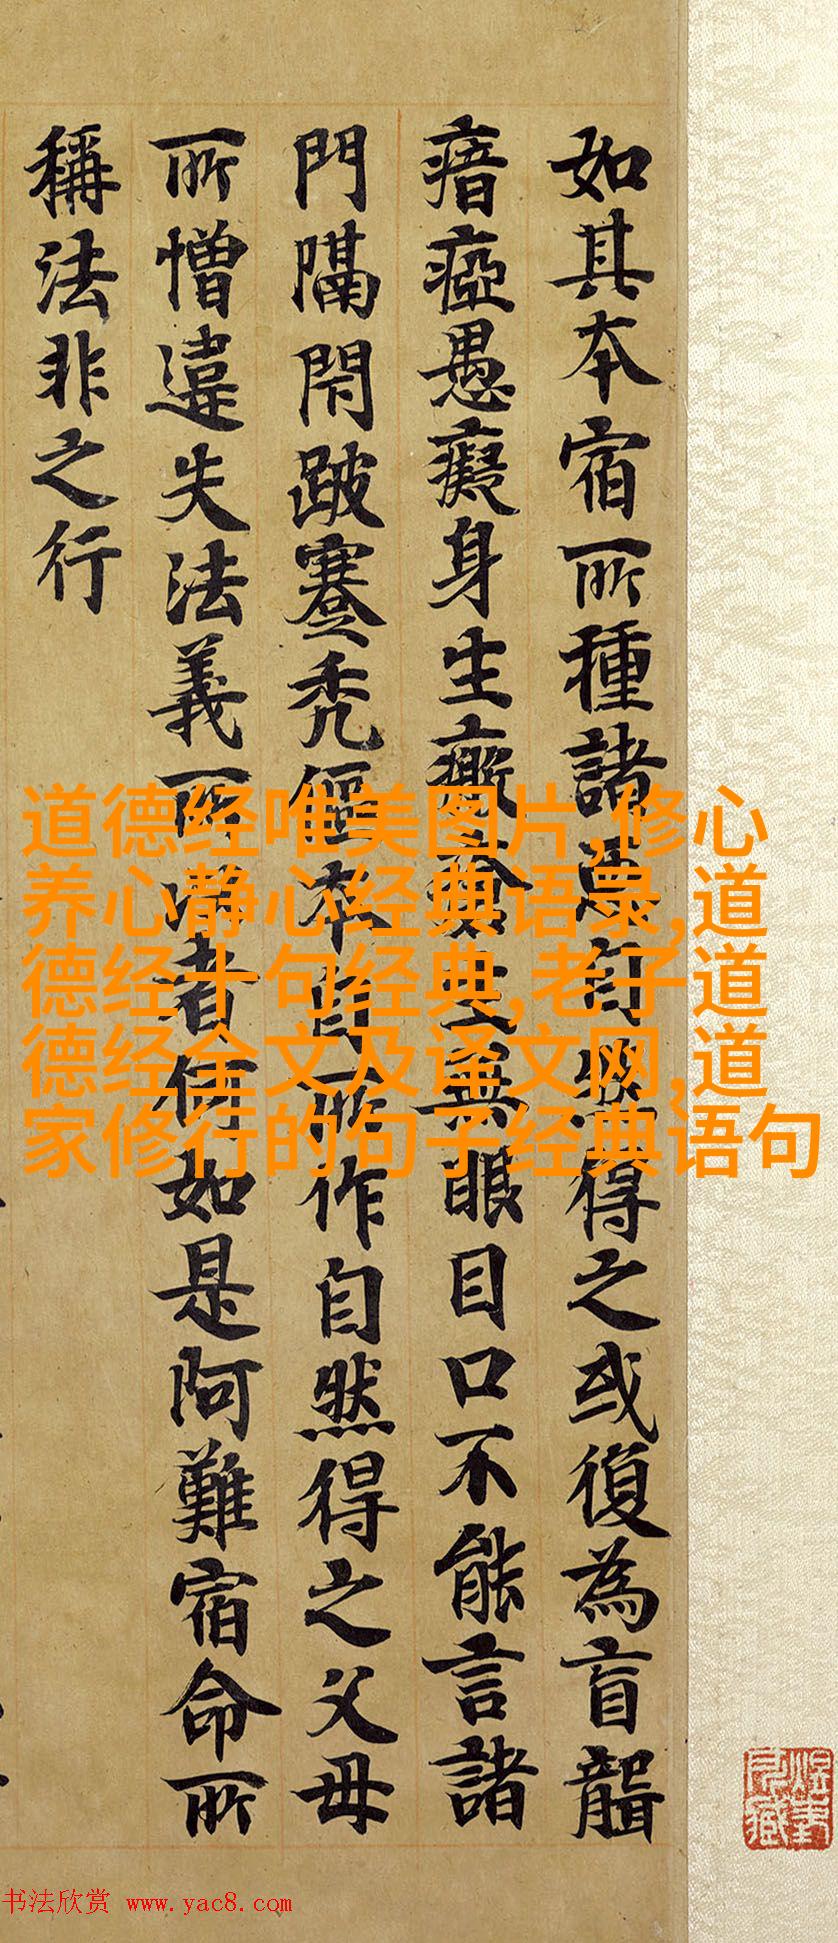 如其本宿所種諸惡自然得之或復為盲聾
瘖瘂愚癡身生瘡無眼目口不能言諸
門隔閇跛蹇禿傴本自所作自然得之父母
所憎違失法義所以者何如是阿難宿命所
稱法非之行
道德经唯美图片,修心
养心静心经典语录,道
德经十句经典,老子道
德经全文及译文网,道
家修行的句子经典语句
书法欣赏 www.yac8.com